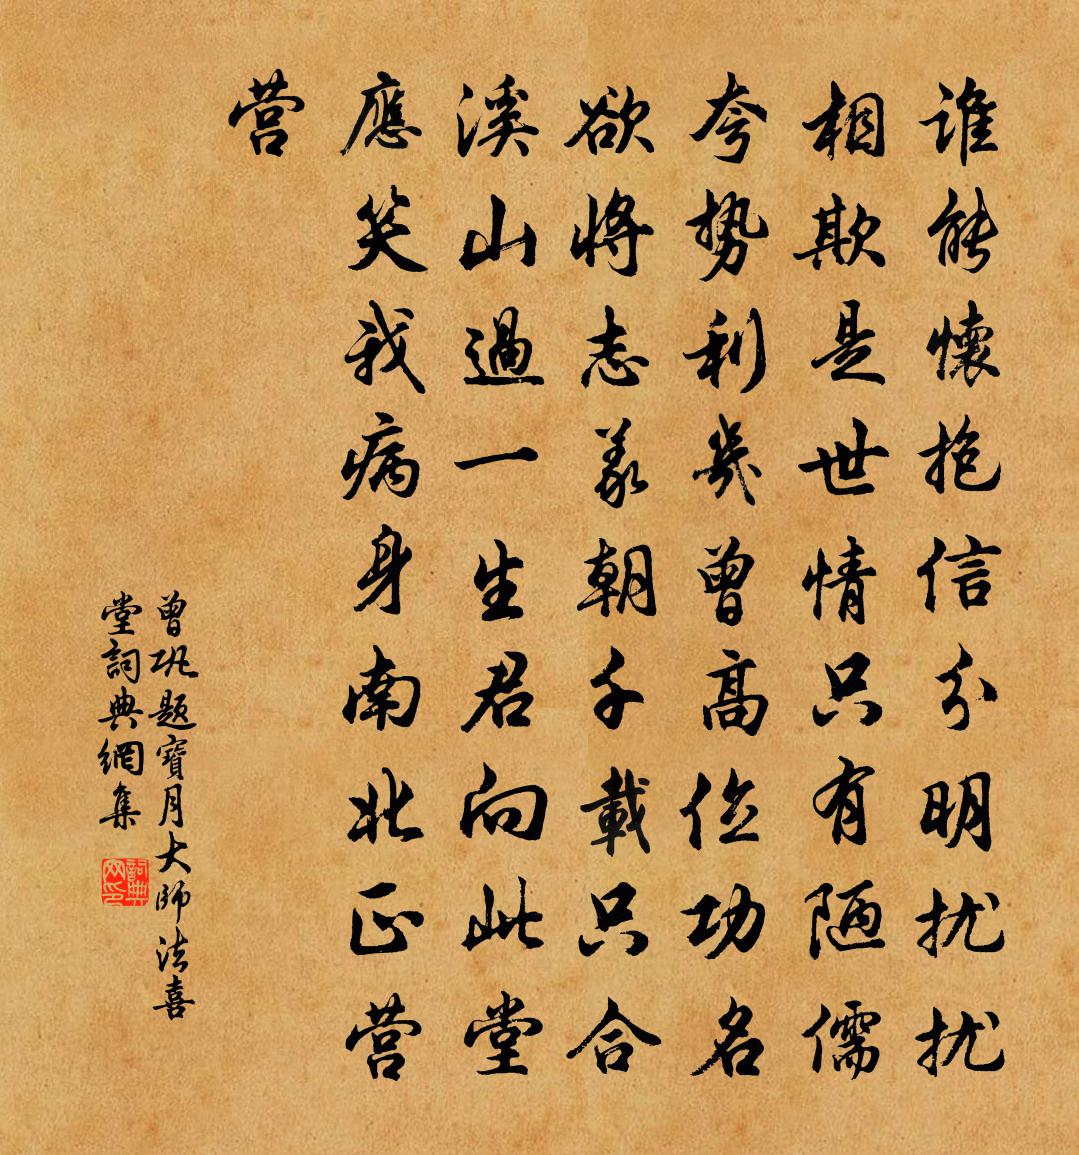 谁能懷抱信分明扰扰
相欺是世情只有陋儒
夸势利幾曾高位功名
欲将志義朝千載只合
溪山過一生君向此堂
應笑我病身南北正营
营
曾巩题寶月大師法喜
堂詞典網集
詞典网印